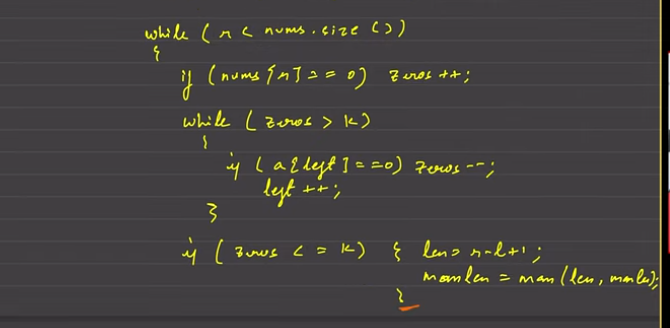 while ( r < nums.size () )
{
if (nums[r] == 0) zeros ++;
while ( zeros > k )
{
if ( a[left] == 0) zeros --;
left ++;
}
if ( zeros <= k ) { len = r-l+1;
maxlen = max (len, maxlen);
}